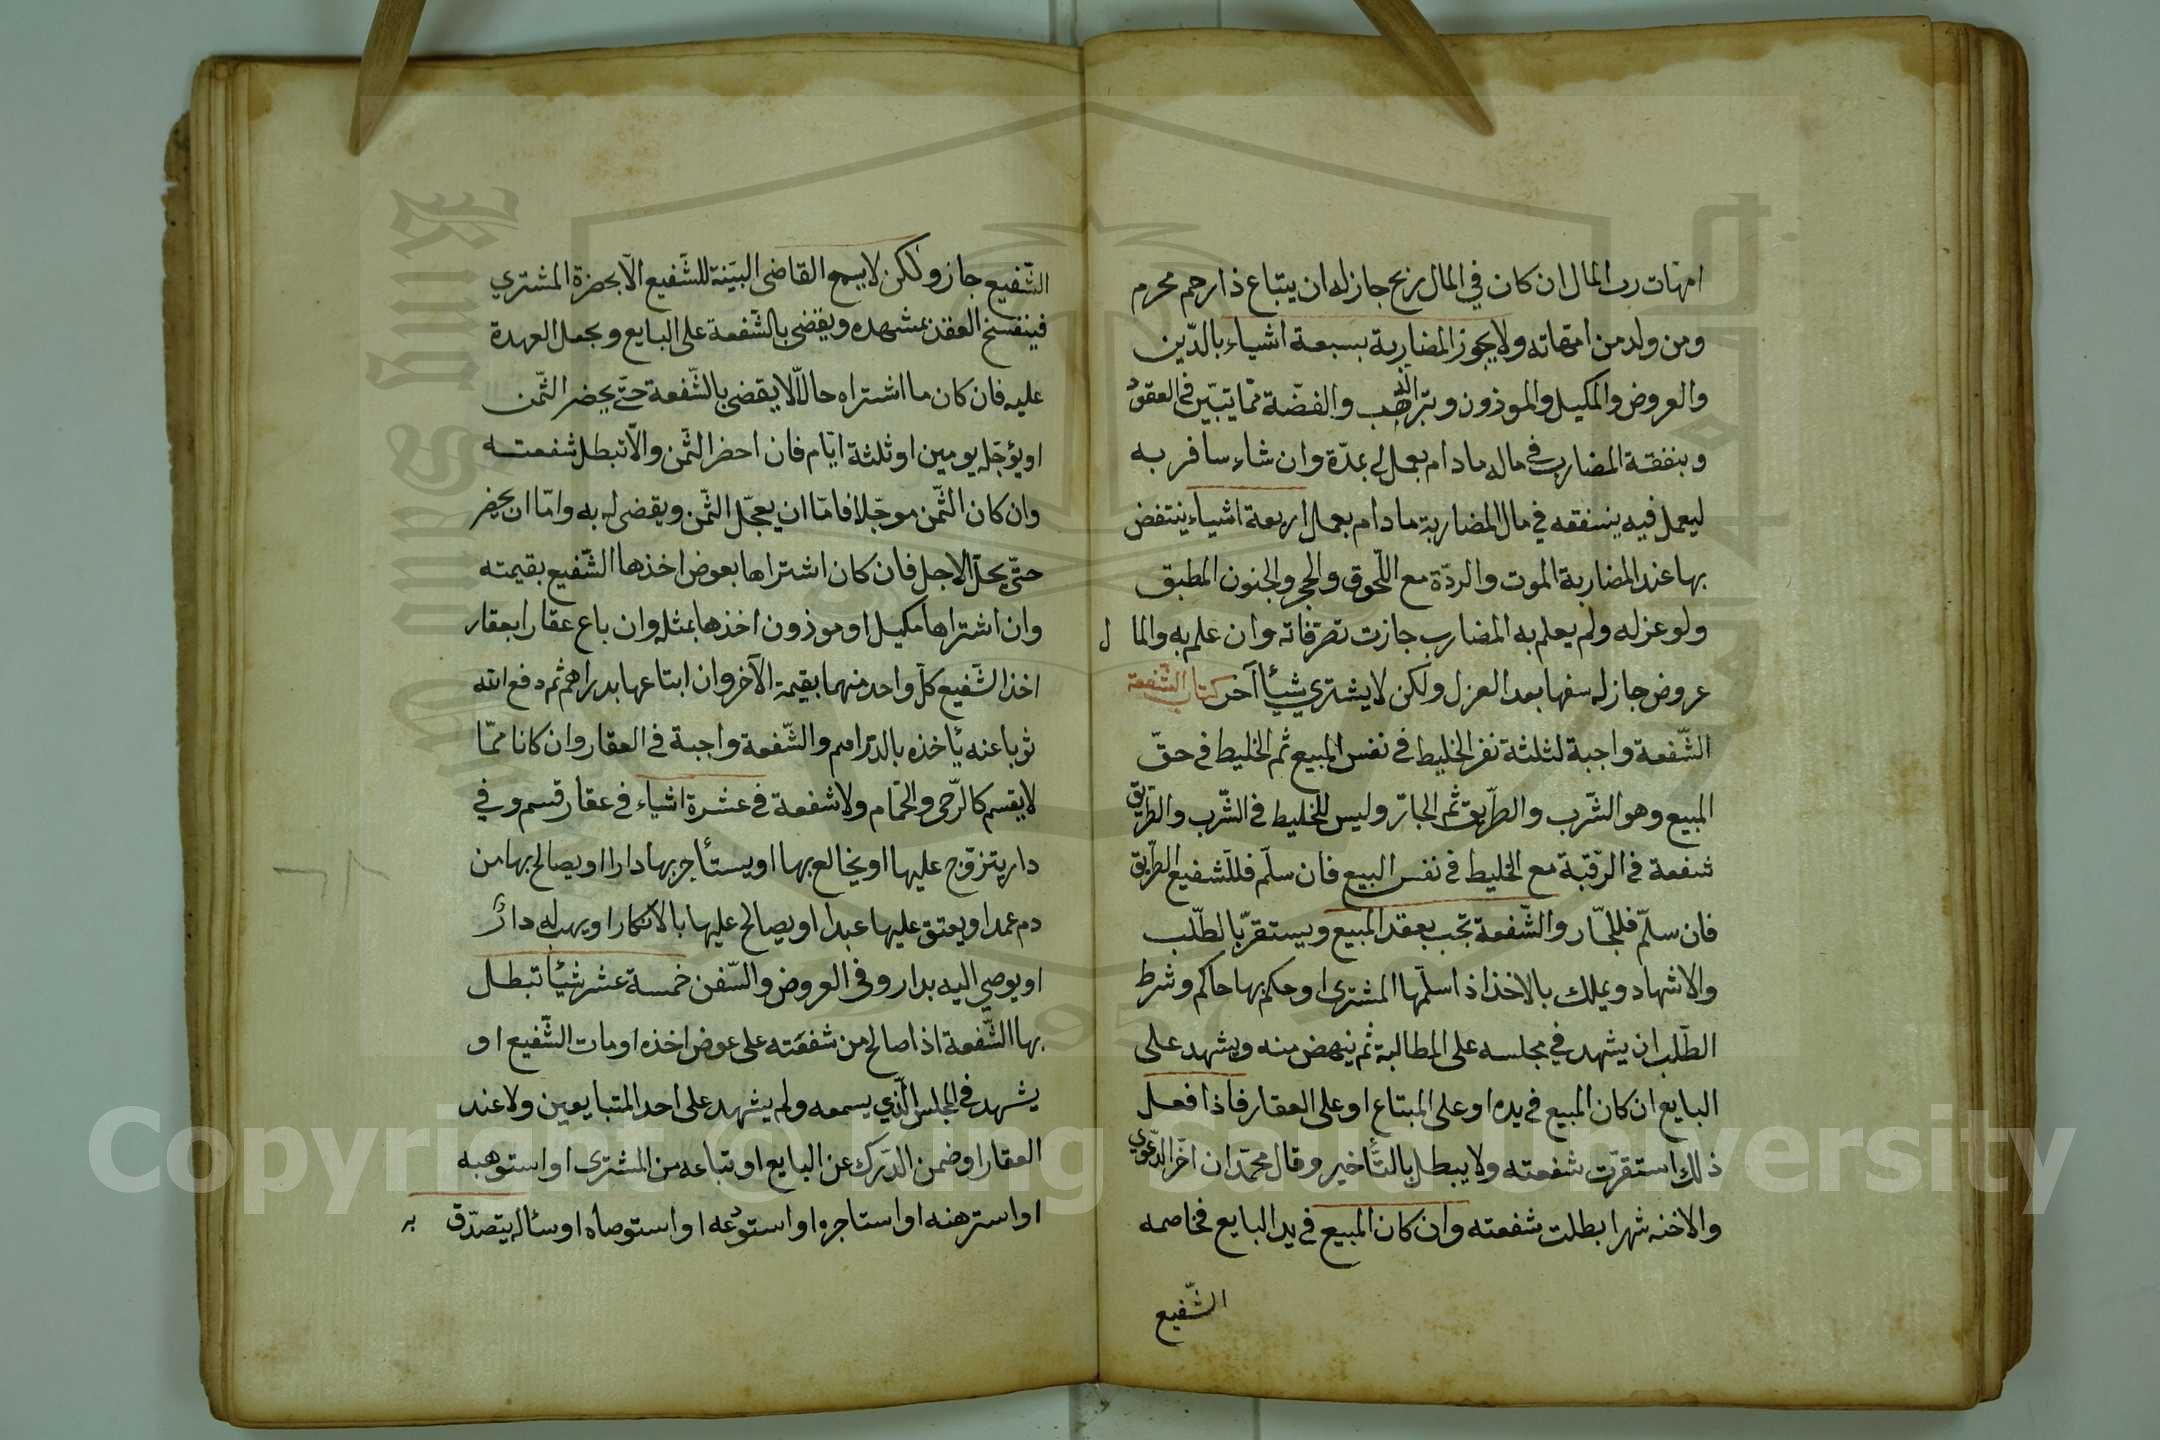 امهات رب المال ان كان في المال ربح جاز له ان يبتاع ذا رحم محرم
ومن ولد من امهاته ولا يجوز المضاربة بسبعة اشياء بالدّين
والعروض والمكيل والموزون وبتر الذهب والفضّة ممّا يتبيّن في العقود
وبنفقة المضارب في ماله مادام يعمل له بمدّة وان شاء سافر به
ليعمل فيه ينفقه في مال المضاربة مادام يعمل اربعة اشياء ينتفض
بها عند المضاربة الموت والردّة مع اللّحوق والحجر والجنون المطبق
ولو عزله ولم يعلم به المضارب جازت تصرّفاته وان علم به والمال
عروض جاز له بيعها بعد العزل ولكن لا يشتري شيئا آخر كتاب الشّفعة
الشّفعة واجبة لثلثة نفر الخليط في نفس المبيع ثم الخليط في حقّ
المبيع وهو الشّرب والطّريق ثم الجارّ وليس للخليط في الشّرب والطريق
شفعة في الرّقبة مع الخليط في نفس البيع فان سلّم فللشّفيع الطّريق
فان سلّم فللجّار والشّفعة تجب بعقد المبيع ويستقرّ بالطّلب
والاشهاد ويملك بالاخذ اذا سلّمها المشترى او حكم بها حاكم وشرط
الطّلب ان يشهد في مجلسه على المطالبة ثم ينهض منه ويشهد على
البايع ان كان المبيع في يده او على المبتاع او على العقار فاذا فعل
ذلك استقرّت شفعته ولا يبطل بالتّأخير وقال محمّد ان اخّر الدّعوى
والاخذ شهرا بطلت شفعته وان كان المبيع في يد البايع فخاصمه
الشّفيع
الشّفيع جاز ولكن لا يسمع القاضى البيّنة للشّفيع الّا بحضرة المشتري
فينفسخ العقد بمشهده ويقضى بالشّفعة على البايع ويجعل العهدة
عليه فان كان ما اشتراه حالّا لا يقضى بالشّفعة حتّى يحضر الثّمن
او يؤجّله يومين او ثلثة ايّام فان احضر الثّمن والّا تبطل شفعته
وان كان الثّمن موجّلا فامّا ان يعجّل الثّمن ويقضى له به وامّا ان يحضر
حتّى يحلّ الاجل فان كان اشتراها بعوض اخذها الشّفيع بقيمته
وان اشتراها بمكيل او موذون اخذها بمثله وان باع عقارا بعقار
اخذ الشّفيع كلّ واحد منهما بقيمة الآخر وان ابتاعها بدراهم ثم دفع اليه
ثوبا عنه يأخذه بالدّراهم والشّفعة واجبة في العقار وان كانا ممّا
لا يقسم كالرّحى والحمّام ولا شفعة في عشرة اشياء في عقار قسم وفي
دار يتزوّج عليها او يخالع بها او يستأجر بها دارا او يصالح بها من
دم عمد او يعتق عليها عبدا او يصالح عليها بالانكار او يهب له دار
او يوصي اليه بدار وفى العروض والسّفن خمسة عشر شيئا تبطل
بها الشّفعة اذا صالح من شفعته على عوض اخذه او مات الشّفيع او
يشهد في المجلس الّذي يسمعه ولم يشهد على احد المتبايعين ولا عند
العقار او ضمن الدّرك عن البايع او تباعه من المشترى او استوهبه
او استرهنه او استاجره او استودعه او استوصاه او سأله يتصدّق به